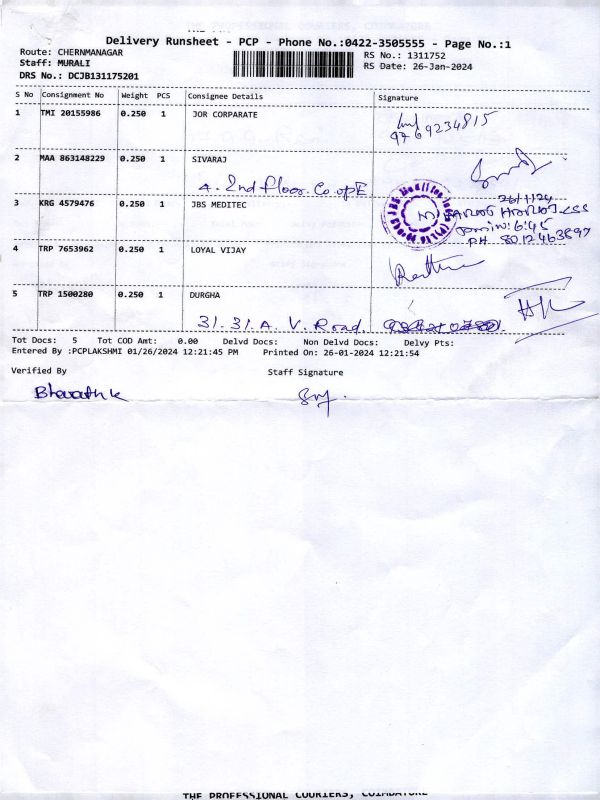 Delivery Runsheet - PCP - Phone No.:0422-3505555 - Page No.:1
Route: CHERNMANAGAR
RS No.: 1311752
Staff: MURALI
RS Date: 26-Jan-2024
DRS No.: DCJB131175201
S No Consignment No Weight PCS Consignee Details Signature
1 TMI 20155986 0.250 1 JOR CORPARATE
9769234815
2 MAA 863148229 0.250 1 SIVARAJ
4. 2nd floor. Co.opE
3 KRG 4579476 0.250 1 JBS MEDITEC
26/1/24
6:45
PH. 8012463897
4 TRP 7653962 0.250 1 LOYAL VIJAY
5 TRP 1500280 0.250 1 DURGHA
31. 31. A. V. Road.
Tot Docs: 5 Tot COD Amt: 0.00 Delvd Docs: Non Delvd Docs: Delvy Pts:
Entered By :PCPLAKSHMI 01/26/2024 12:21:45 PM Printed On: 26-01-2024 12:21:54
Verified By Staff Signature
Bharath k
THE PROFESSIONAL COURIERS, COIMBATORE